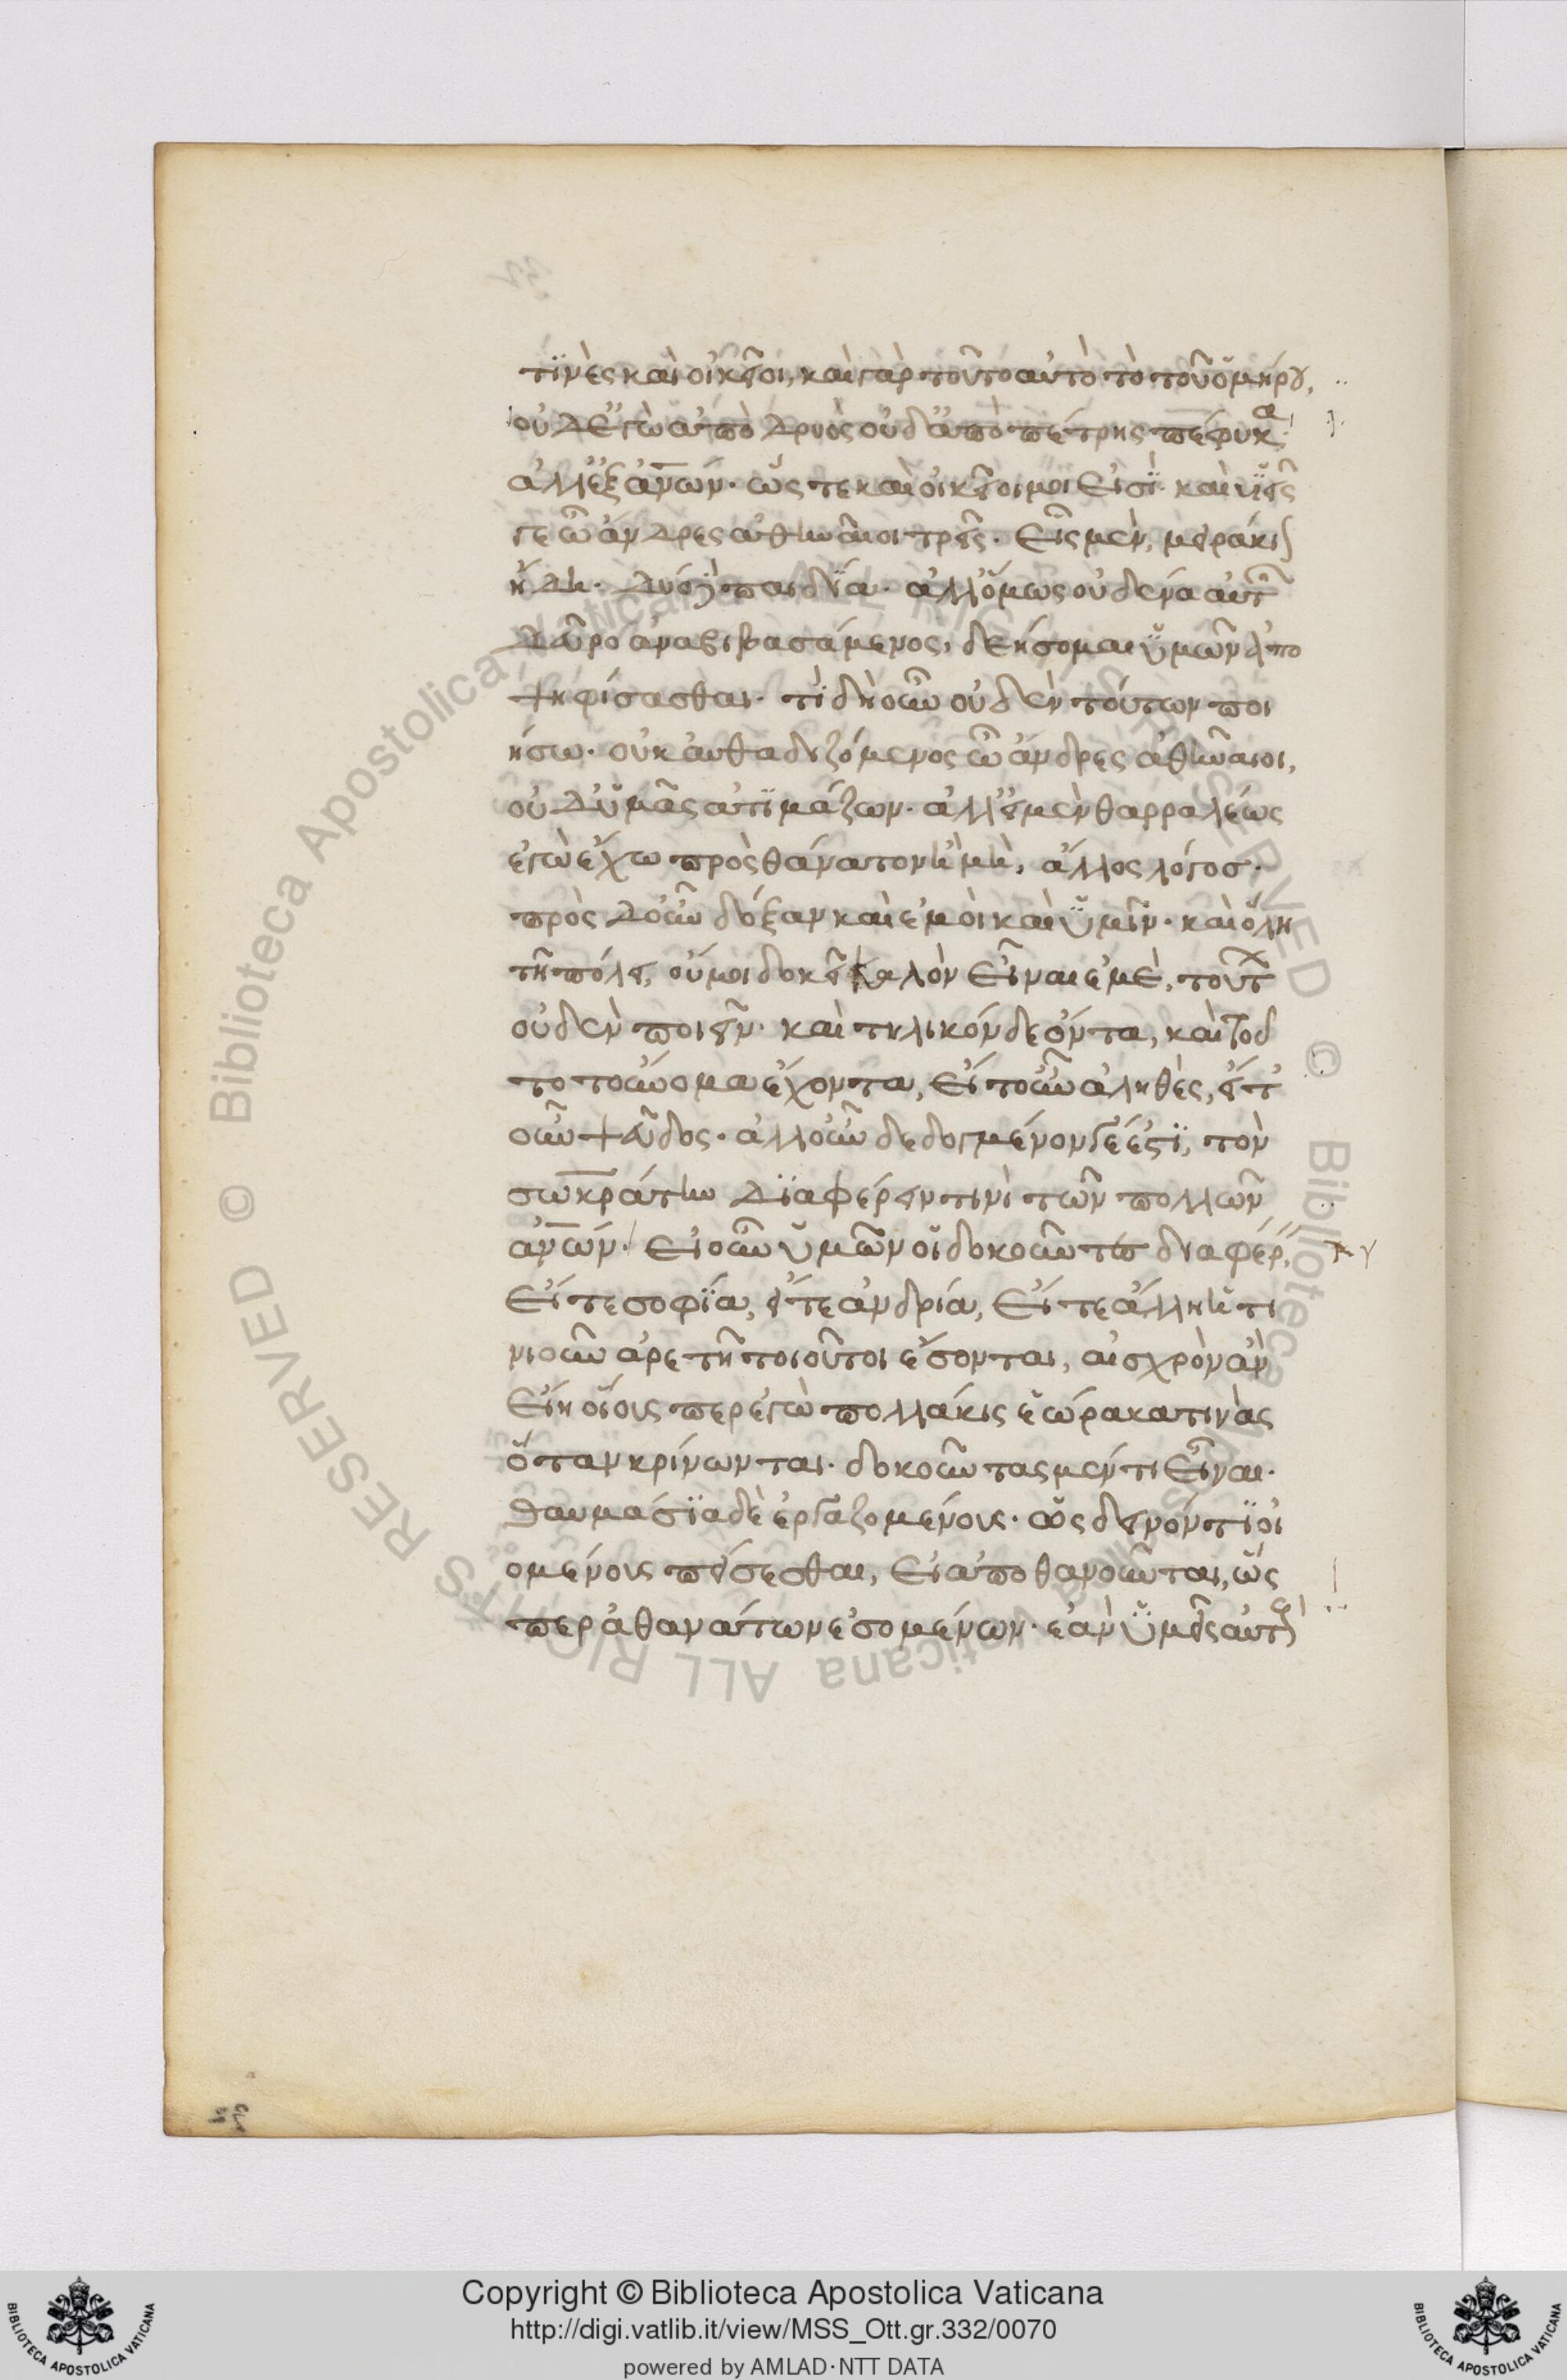 τινὲς καὶ οἰκεῖοι, καὶ γὰρ τοῦτο αὐτὸ τὸ τοῦ ὁμήρου,
οὐ δ' ἐγὼ ἀπὸ δρυὸς οὐδ' ἀπὸ πέτρης πέφυκα
ἀλλ' ἐξ ἀν̅ων· ὥς τε καὶ οἰκεῖοι μοι εἰσὶ· καὶ υἱεῖς
γε ὦ ἄνδρες ἀθηναῖοι τρεῖς· εἷς μὲν, μειράκιον
ἤδη· δύο δὲ παιδία· ἀλλ' ὅμως οὐδένα αὐτῶν
δεῦρο ἀναβιβασάμενος, δεήσομαι ὑμῶν ἀπο
ψηφίσασθαι· τί δὴ οὖν οὐδὲν τούτων ποι
ήσω· οὐκ αὐθαδιζόμενος ὦ ἄνδρες ἀθηναῖοι,
οὐδ' ὑμᾶς ἀτιμάζων· ἀλλ' εἰ μὲν θαρραλέως
ἐγὼ ἔχω πρὸς θάνατον ἢ μὴ, ἄλλος λόγοσ·
πρὸς δ' οὖν δόξαν καὶ ἐμοὶ καὶ ὑμῖν· καὶ ὅλη
τῆ πόλει, οὔ μοι δοκεῖ καλὸν εἶναι ἐμὲ, τούτων
οὐδὲν ποιεῖν· καὶ τηλικόνδε ὄντα, καὶ τοῦ
το τοὔνομα ἔχοντα, εἴτ' οὖν ἀληθὲς, εἴτ'
οὖν ψεῦδος· ἀλλ' οὖν δεδογμένον γέ ἐστι, τὸν
σωκράτην διαφέρειν τινὶ τῶν πολλῶν
ἀν̅ων· εἰ οὖν ὑμῶν οἱ δοκοῦντες διαφέρειν
εἴτε σοφία, εἴτε ἀνδρία, εἴτε ἄλλη ἡτι
νιοῦν ἀρετῆ τοιοῦτοι ἔσονται, αἰσχρὸν ἂν
εἴη οἵοις περ ἐγὼ πολλάκις ἑώρακα τινὰς
ὅταν κρίνωνται· δοκοῦντας μέν τι εἶναι·
θαυμάσια δὲ ἐργαζομένους· ὡς δεινόν τι οἰ
ομένους πείσεσθαι, εἰ ἀποθανοῦνται, ὥς
περ ἀθανάτων ἐσομένων· ἐὰν ὑμεῖς αὐτοὺς
Copyright © Biblioteca Apostolica Vaticana
http://digi.vatlib.it/view/MSS_Ott.gr.332/0070
powered by AMLAD·NTT DATA